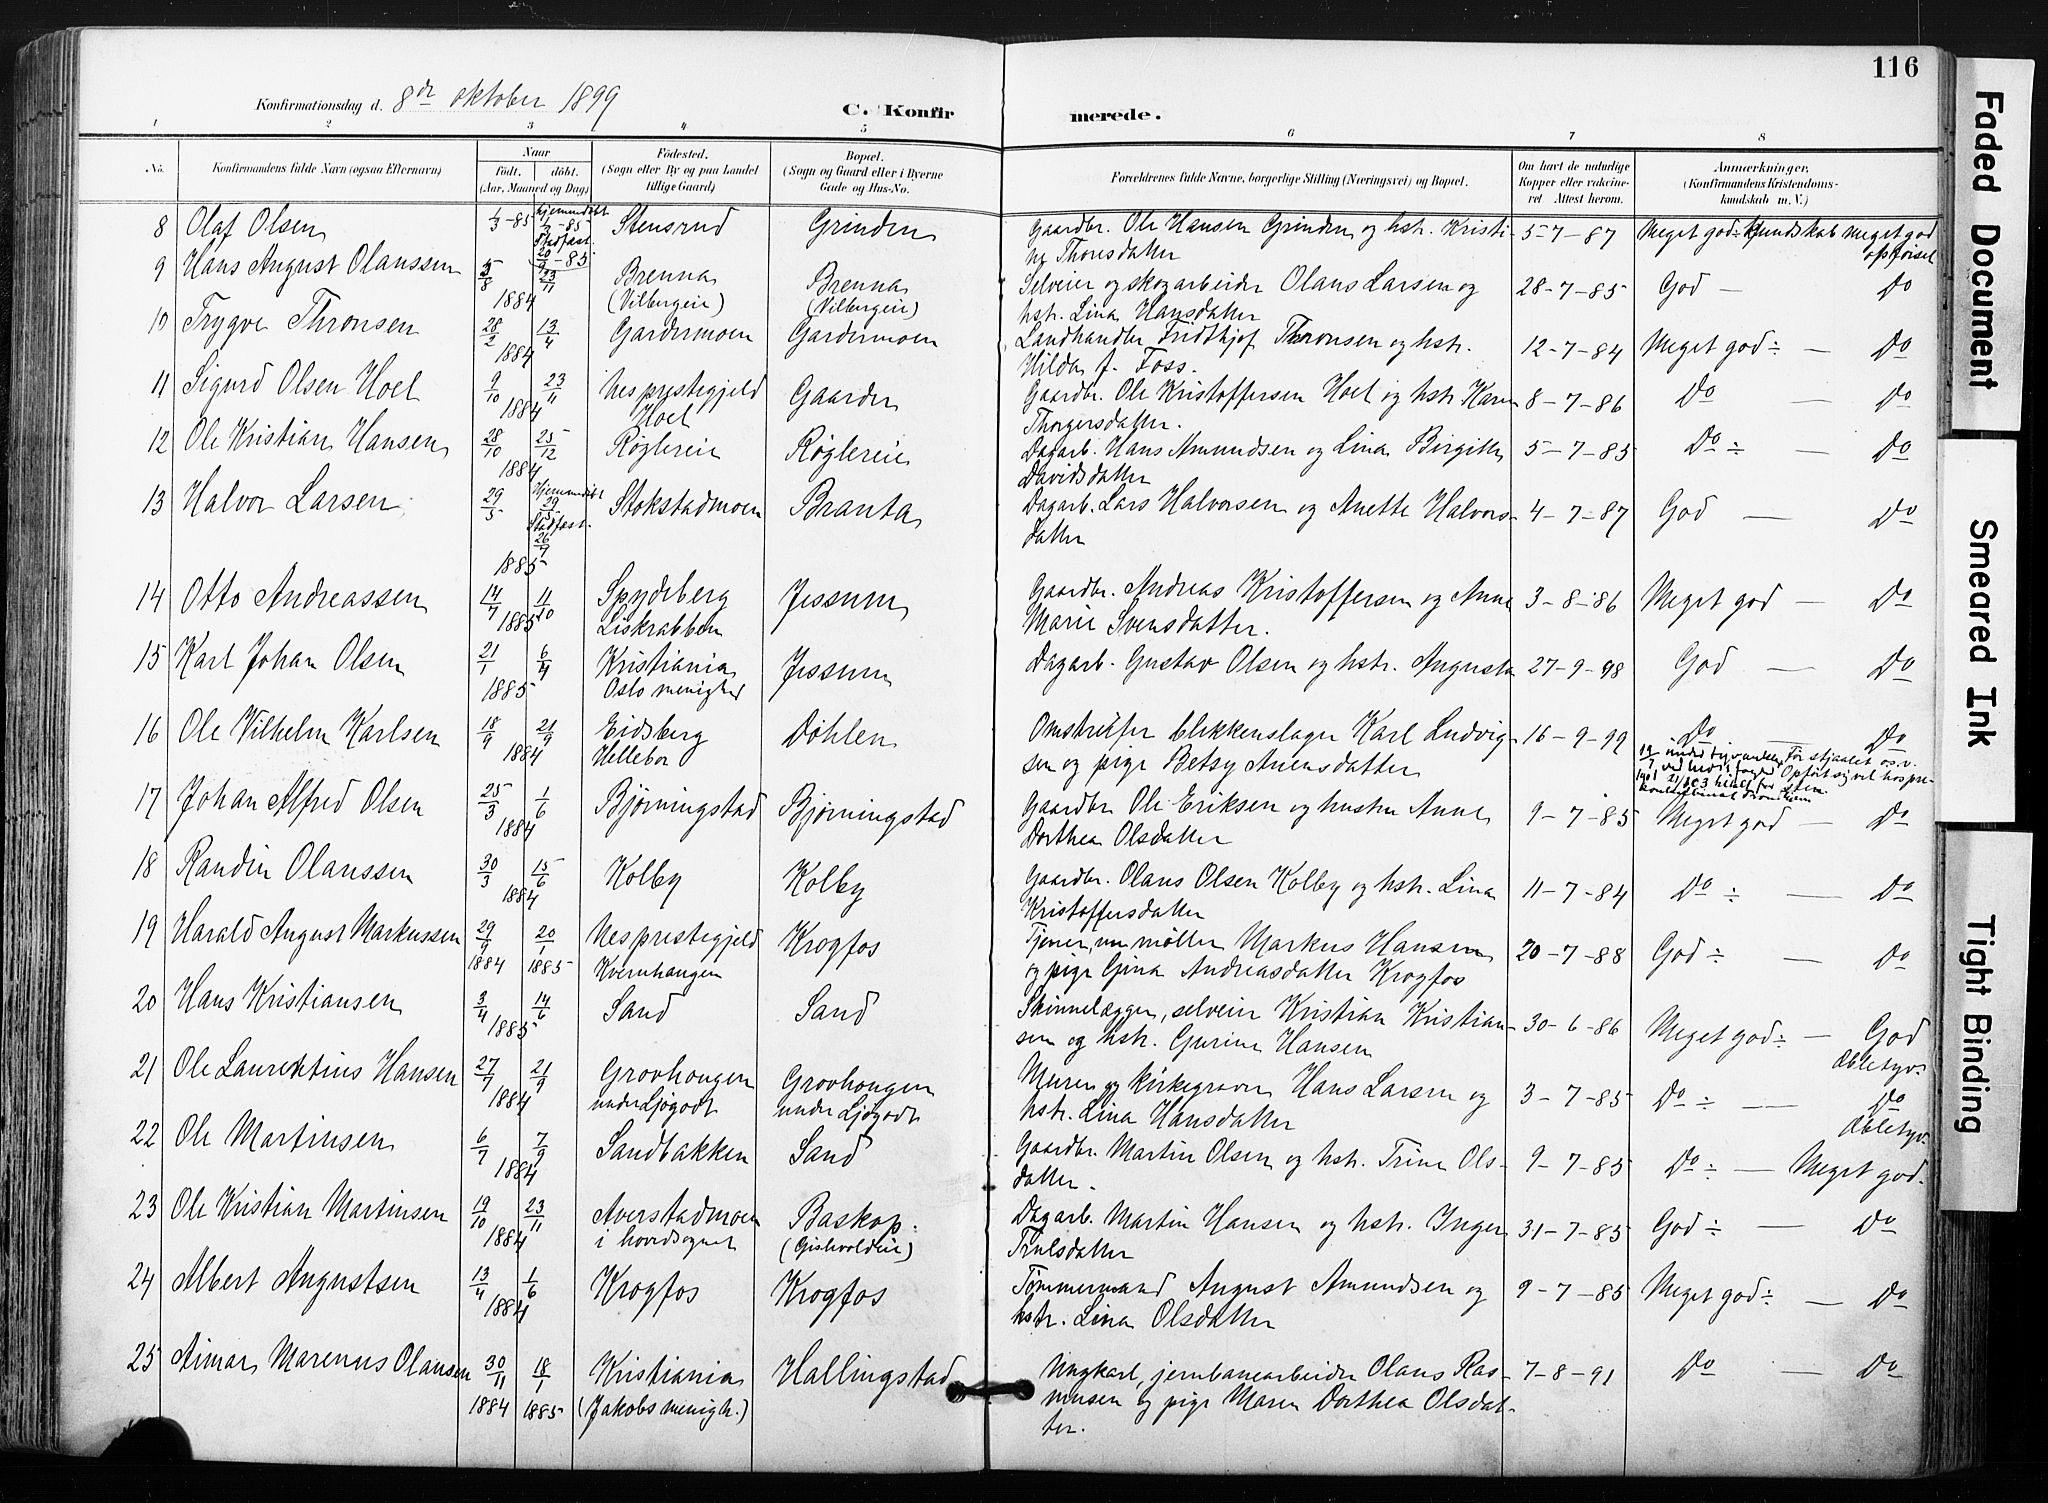 116
Konfirmationsdag d. 8de oktober 1899
C. Konfirmerede.
1 2 3 4 5 6 7 8
No. Konfirmandens fulde Navn (ogsaa Efternavn) Naar födt. döbt. (Aar, Maaned og Dag) Födested. (Sogn eller By og paa Landet tillige Gaard) Bopæl. (Sogn og Gaard eller i Byerne Gade og Hus-No. Forældrenes fulde Navne, borgerlige Stilling (Næringsvei) og Bopæl. Om havt de naturlige Kopper eller vakcineret. Attest herom. Anmærkninger. (Konfirmandens Kristendomskundskab m. V.)
8 Olaf Olsen 1/3-85 hjemmedøbt 1/3-85 Stadfæst. 20/9-85 Stensrud Grinden Gaardbr. Ole Hansen Grinden og hstr. Kristi- 5-7-87 Meget god÷ Kundskab meget god
ne Thoresdatter opførsel
9 Hans August Olanssen 5/8 23/11 1884 Brenna Brenna Selveier og skogarbeider Olans Larsen og 28-7-85 God — Do
(Vilbergeie) (Vilbergeie) hstr. Lina Hansdatter
10 Trygve Thronsen 28/2 13/4 1884 Gardermoen Gardermoen Landhandler Fridthjof Thronsen og hstr. 12-7-84 Meget god÷ — Do
Hilda f. Foss.
11 Sigurd Olsen Hoel 9/10 23/11 1884 Nes prestegjeld Gaarder Gaardbr. Ole Kristoffersen Hoel og hstr. Karen 8-7-86 Do — Do
Hoel Thorgersdatter.
12 Ole Kristian Hansen 28/10 25/12 1884 Røglereie Røglereie Dagarb. Hans Amundsen og Lina Birgitte 5-7-85 Do ÷ — Do
Davidsdatter
13 Halvor Larsen 29/5 Hjemmedøbt 29/5 Stadfæst. 26/9 1885 Stokstadmoen Branta Dagarb. Lars Halvorsen og Anette Halvors- 4-7-87 God — Do
datter
14 Otto Andreassen 14/7 11/10 1885 Spydeberg Jessum Gaardbr. Andreas Kristoffersen og Anne 3-8-86 Meget god — Do
Liskrabben Marie Svensdatter.
15 Karl Johan Olsen 21/1 6/4 1885 Kristiania Jessum Dagarb. Gustav Olsen og hstr. Augusta 27-9-98 God — Do
Oslo menighed
16 Ole Vilhelm Karlsen 18/9 21/9 1884 Eidsberg Døhlen Omstreifer blikkenslager Karl Ludvig- 16-9-99 Do — Do
Hellebor sen og pige Betsy Anensdatter
17 Johan Alfred Olsen 25/3 1/6 1884 Bjørningstad Bjørningstad Gaardbr. Ole Eriksen og hustru Anne 9-7-85 Meget god — Do
Dorthea Olsdatter
18 Randin Olanssen 30/3 15/6 1884 Kolby Kolby Gaardbr. Olans Olsen Kolby og hstr. Lina 11-7-84 Do ÷ — Do
Kristoffersdatter
19 Harald August Markussen 29/9 1884 20/1 1885 Nes prestegjeld Krogfos Tjener, nu møller Markus Hansen 20-7-88 God ÷ — Do
Kvernhaugen og pige Gina Andreasdatter Krogfos
20 Hans Kristiansen 3/4 14/6 1885 Sand Sand Skinnelægger, selveier Kristian Kristian- 30-6-86 Meget god÷ — God
sen og hstr. Gurine Hansen Æbletyv.
21 Ole Laurentius Hansen 27/7 21/9 1884 Grovhougen Grovhougen Murer og kirkegraver Hans Larsen og 3-7-85 Do ÷ — Do
under Ljøgodt under Ljøgodt hstr. Lina Hansdatter Æbletyv.
22 Ole Martinsen 6/7 7/9 1884 Sandbakken Sand Gaardbr. Martin Olsen og hstr. Trine Ols- 9-7-85 Do ÷ — Meget god.
datter.
23 Ole Kristian Martinsen 19/10 23/11 1884 Averstadmoen Baskop. Dagarb. Martin Hansen og hstr. Inger 31-7-85 God ÷ — Do
i hovedsognet Trulsdatter
24 Albert Augustsen 13/4 1/6 1884 Krogfos Krogfos Tømmermand August Amundsen og 9-7-85 Meget god÷ — Do
hstr. Lina Olsdatter
25 Aimar Marenus Olansen 30/11 1884 18/1 1885 Kristiania Hallingstad Ungkarl, jernbanearbeider Olans Ras- 7-8-91 Do — Do
(Jakobs menigh.) mussen og pige Maren Dorthea Olsdat-
ter.
Faded Document
Smeared Ink
Tight Binding